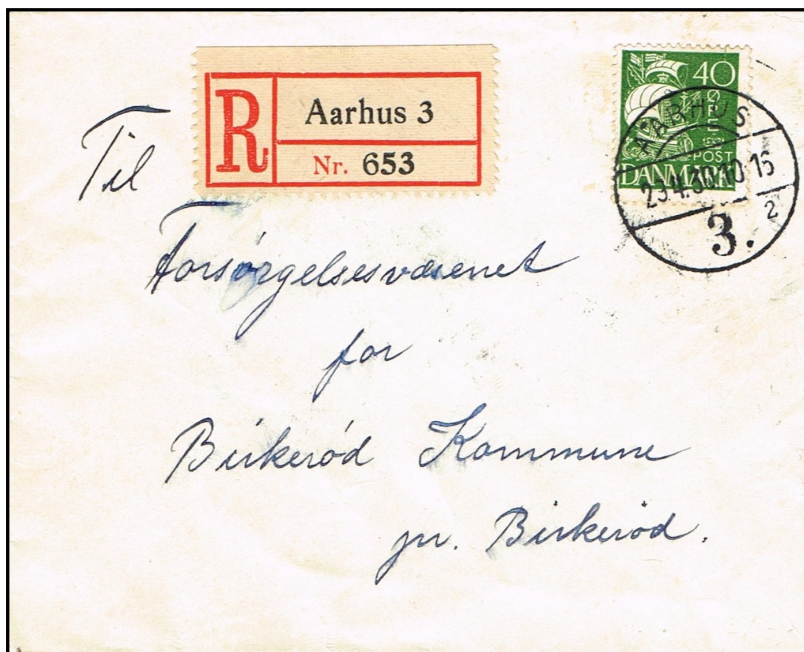 R
Aarhus 3
Nr. 653
40
POST
DANMARK
AARHUS
3.
2
Til
Forsörgelsesvæsenet
for
Birkeröd Kommune
pr. Birkeröd.